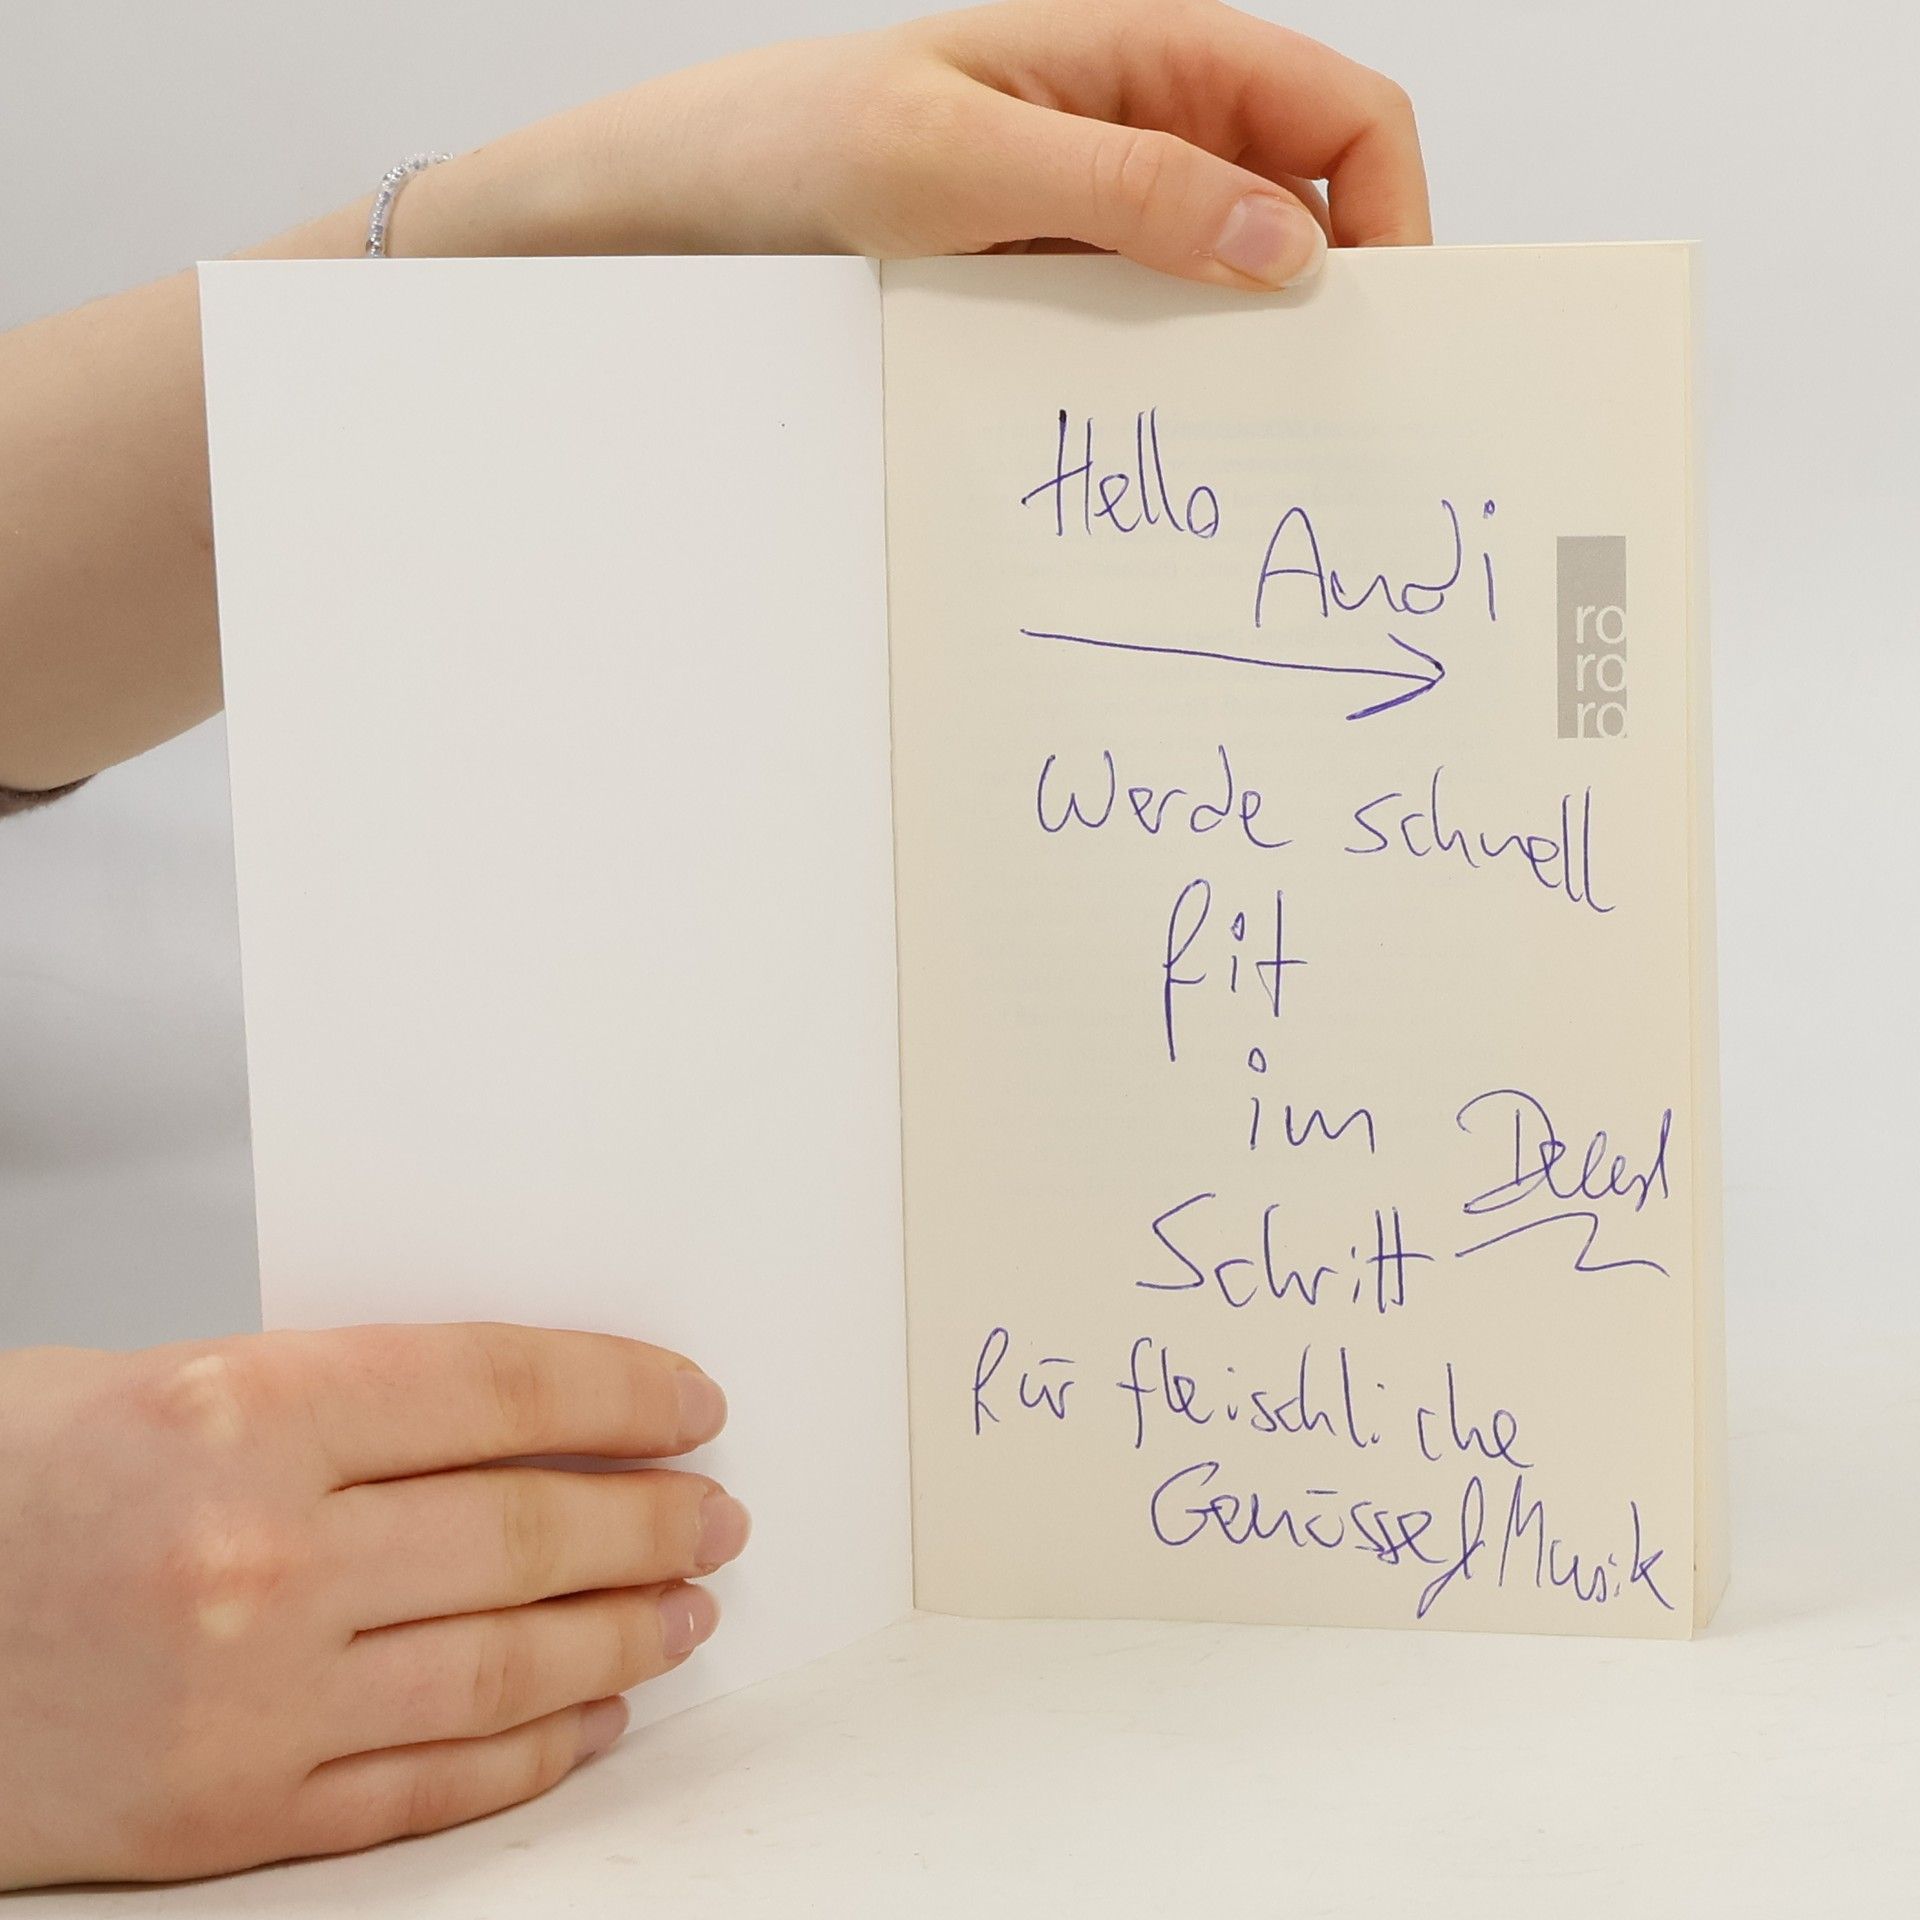 Hello
Andi
ro
ro
ro
Werde schnell
fit
im
Schritt
für fleischliche
Genüsse & Musik